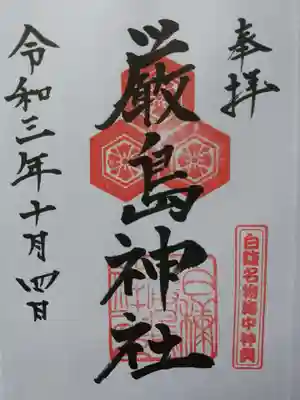 奉拝
厳島神社
令和三年十月四日
名物海中神輿